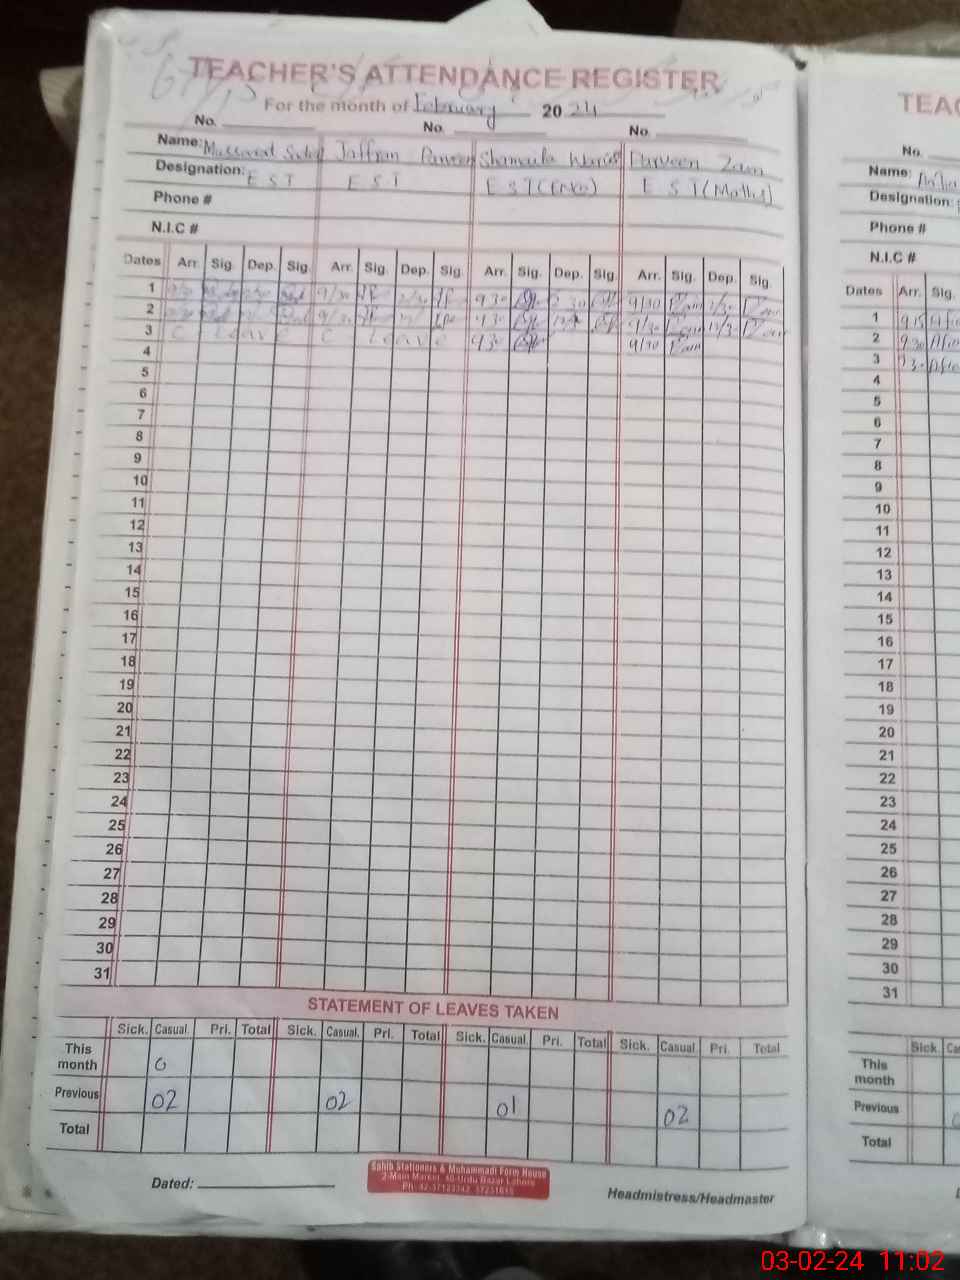 TEACHER'S ATTENDANCE REGISTER
For the month of February 2024
No. No. No.
Name: Mussarat Jaffran Parveen Shamaila Waris Parveen Zam
Designation: E S T E S T E S T (Eng) E S T (Maths)
Phone #
N.I.C #
Dates Arr. Sig. Dep. Sig. Arr. Sig. Dep. Sig. Arr. Sig. Dep. Sig. Arr. Sig. Dep. Sig.
1 9/30 9 30 2 30 9/30
2 9/30 9 30 9/30 12/30
3 C Leave C Leave 9 30 9/30
4
5
6
7
8
9
10
11
12
13
14
15
16
17
18
19
20
21
22
23
24
25
26
27
28
29
30
31
STATEMENT OF LEAVES TAKEN
Sick. Casual. Pri. Total Sick. Casual. Pri. Total Sick. Casual. Pri. Total Sick. Casual Pri. Total
This month 0
Previous 02 02 01 02
Total
Dated:
Sahib Stationers & Muhammadi Form House
2-Main Market, 40-Urdu Bazar Lahore
Headmistress/Headmaster
TEAC
No.
Name:
Designation:
Phone #
N.I.C #
Dates Arr. Sig.
1 915
2 930
3 930
4
5
6
7
8
9
10
11
12
13
14
15
16
17
18
19
20
21
22
23
24
25
26
27
28
29
30
31
Sick. Ca
This month
Previous
Total
03-02-24 11:02